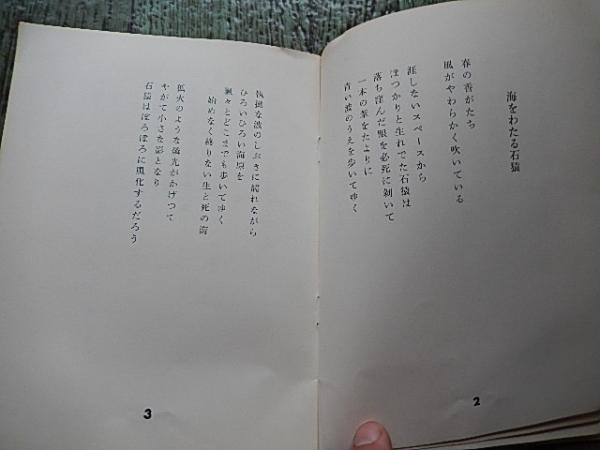 海をわたる石猿
春の香がたち
風がやわらかく吹いている
涯しないスペースから
ぽつかりと生れでた石猿は
落ち窪んだ眼を必死に剝いて
一本の葦をたよりに
青い波のうえを歩いてゆく
2
執拗な波のしぶきに濡れながら
ひろいひろい海原を
飄々とどこまでも歩いてゆく
始めなく終りない生と死の海
狐火のような燐光がかげつて
やがて小さな影となり
石猿はぼろぼろに風化するだろう
3